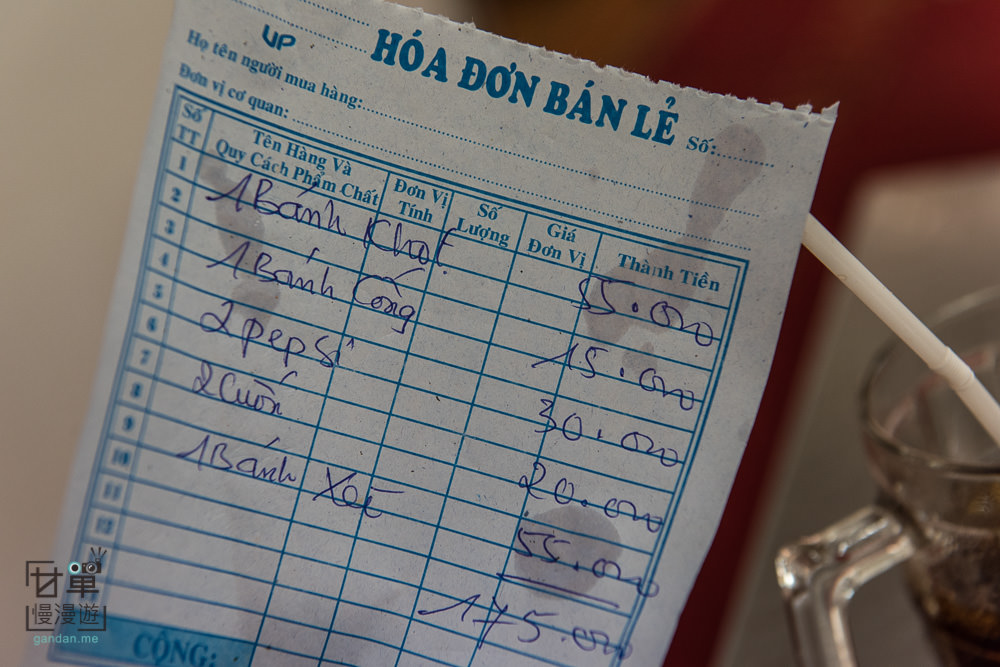 HÓA ĐƠN BÁN LẺ
UP
Số:
Họ tên người mua hàng:
Đơn vị cơ quan:
Số TT Tên Hàng Và Quy Cách Phẩm Chất Đơn Vị Tính Số Lượng Giá Đơn Vị Thành Tiền
1
2
3
4
5
6
7
8
9
10
11
12
1 Bánh Khọt 55.000
1 Bánh Cống 15.000
2 pepsi 30.000
2 Cuốn 20.000
1 Bánh Xèo 55.000
175.000
CỘNG:
甘單
慢漫遊
gandan.me